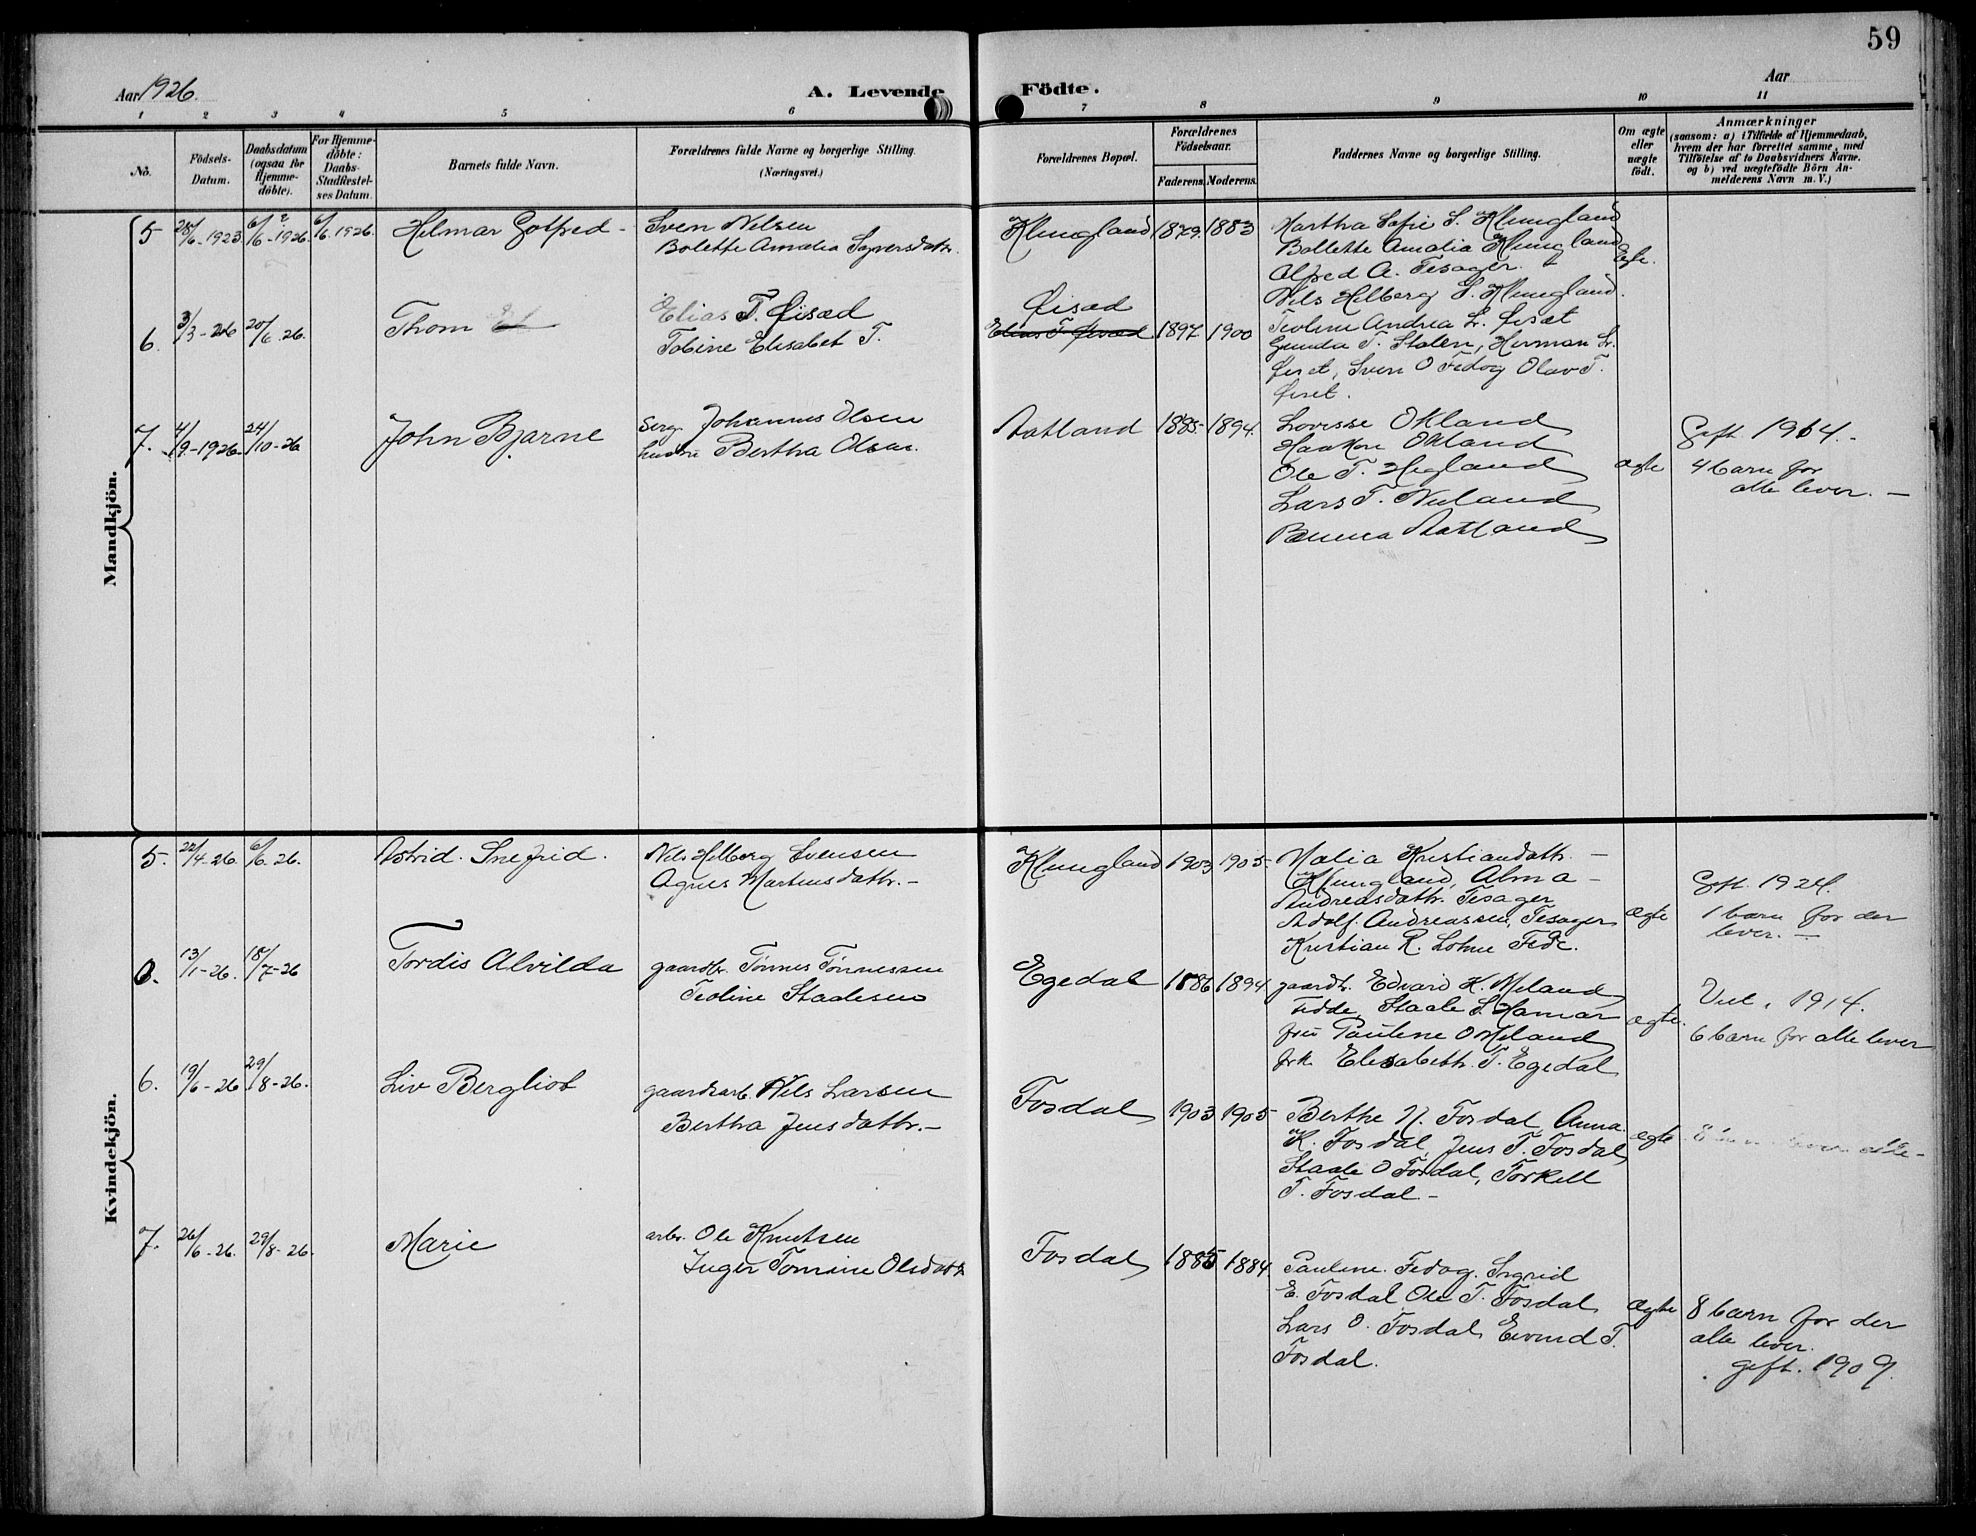 59
Aar 1926.
A. Levende Födte.
Aar
1 2 3 4 5 6 7 8 9 10 11
No.
Födsels-
Datum.
Daabsdatum
(ogsaa for
Hjemme-
döbte).
For Hjemme-
döbte:
Daabs-
Stadfæstel-
ses Datum.
Barnets fulde Navn.
Forældrenes fulde Navne og borgerlige Stilling.
(Næringsvei.)
Forældrenes Bopæl.
Forældrenes
Födselsaar.
Faderens. Moderens.
Faddernes Navne og borgerlige Stilling.
Om ægte
eller
uægte
födt.
Anmærkninger
(saasom: a) i Tilfælde af Hjemmedaab,
hvem der har forrettet samme, med
Tilföielse af to Daabsvidners Navne,
og b) ved uægtefödte Börn An-
melderens Navn m. V.)
Mandkjön.
5 28/6-1923 6/6-1926 6/6.1926 Helmar Gotfred -
Sven Nilsen
Bolette Amalia Syversdatr.
Klungland 1879. 1883
Martha Sofie S. Klungland
Bollette Amalia Klungland
Alfred A. Tesager.
Nils Helberg S. Klungland.
Ægte.
6. 3/3-26 20/6.26. Thom
Elias T. Øisæd
Tobine Elisabet T.
Øisæd
Elias T Øisæd 1897 1900
Teoline Andrea L. Øisæt
Gunda T. Stolen, Herman L.
Øiset, Sven O Fedog Olav T.
Øiset.
7. 4/9-1926 24/10-26 John Bjarne
serg. Johannes Olsen
hustru Bertha Olsen.
Aatland 1885- 1894.
Lovisse Okland
Haakon Okland
Ole T. Hegland
Lars T. Nuland
Aatland
ægte
Gift 1914.-
4 barn før
alle lever. -
Kvindekjön.
5. 22/4-26. 6/6.26. Astrid. Snefrid.
Nils Helberg Svensen
Agnes Martinsdatr. -
Klungland 1903 1905-
Malia Kristiandatr. -
Klungland, Alma -
Andreasdatr. Tesager
Adolf. Andreassen, Tesager
Kristian R. Lohne Fede.
ægte
Gift. 1924.
1 barn før der
lever. -
13/1-26. 18/7-26 Tordis Alvilda
gaardbr. Tønnes Tønnessen
Teoline Staalesen
Egedal 1886 1894.
gaardbr. Edvard H. Meland
Fedde, Staale S. Hamar
fru Pauline O Meland
frk Elisabeth. T. Egedal
ægte.
Viet. 1914.
6 barn før alle lever
6. 19/6-26 29/8-26. Liv Bergliot
gaardsarb. Nils Larsen
Bertha Jensdatr. -
Fosdal 1903 1905
Berthe N. Fosdal, Anna.
K. Fosdal, Jens T. Fosdal,
Staale O Fosdal, Torkell
T. Fosdal. -
ægte
alle -
7. 26/6-26. 29/8-26. Marie
arbr. Ole Knutsen
Inger Tomine Olsdatr
Fosdal 1885 1884.
Pauline. Fedog. Sigrid
E. Fosdal Ole T. Fosdal
Lars O. Fosdal, Eivind T.
Fosdal.
ægte
8 barn før der
alle lever.
gift. 1909.